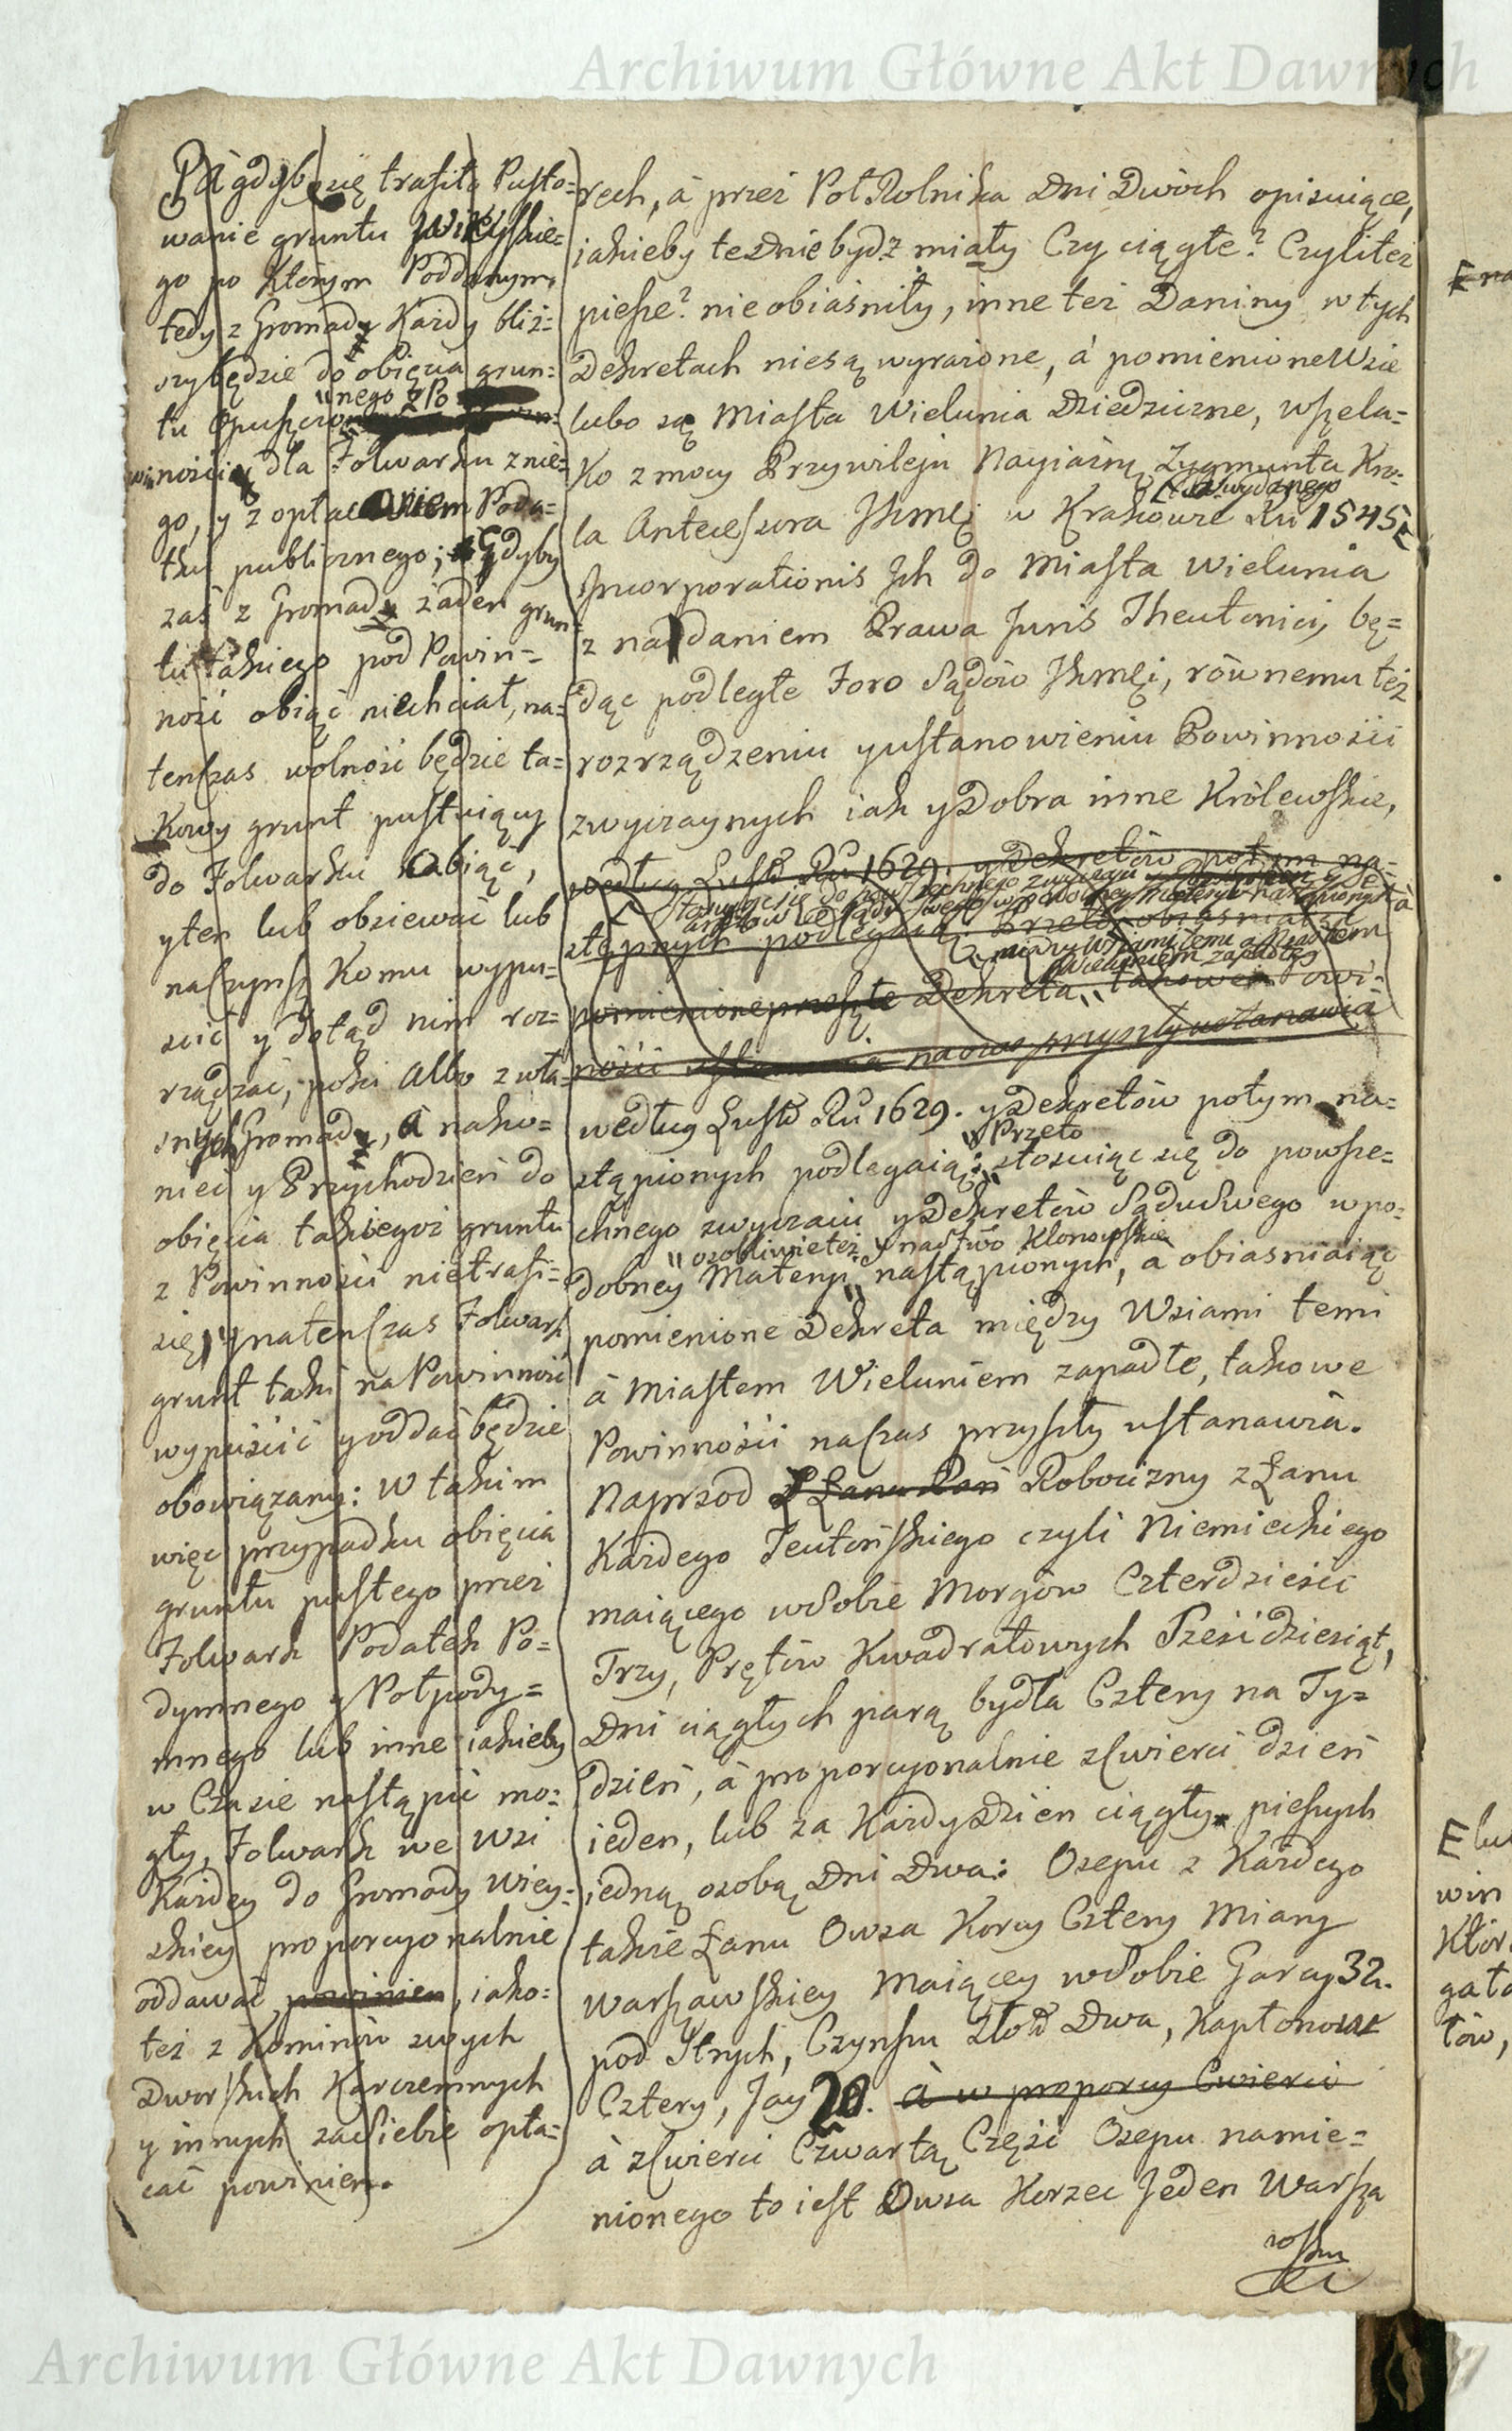 Archiwum Główne Akt Dawnych
Pā gdyby się trafiło Pusto=
wanie gruntu Wieyskie=
go po którym Poddanym,
tedy z Gromady Kazdy bliż=
szy będzie do obięcia grun=
nego z Po
tu Opuszczo
winności dla Folwarku z nie=
go, y z opłaceniem Poda=
tku publicznego; Gdyby
zaś z Gromady żaden grun=
tu takiego pod Powin=
ność obiąć niechciał, na=
tenczas wolność będzie ta=
kowy grunt pustuiący
do Folwarku zabiąć,
y ten lub obsiewać lub
na czynsz Komu wypu=
scić y dotąd nim roz=
rządzać, poki Albo z wła=
snych Gromady, A nako=
niec y Przychodzień do
obięcia takiegoż gruntu
z Powinności nietrafi=
się, y natenczas Folwark
grunt taki na Powinność
wypuścić y oddać będzie
obowiązany: W takim
więc przypadku obięcia
gruntu pustego przez
Folwark Podatek Po=
dymnego y Połpody=
mnego lub inne iakieby
w Czasie nastąpić mo=
gły, Folwark we Wsi
Każdey do Gromady Wiey=
skiey proporcyonalnie
oddawać powinien, iako=
też z Kominów swych
Dworskich Karczemnych
y innych za Siebie opła=
cać powinien.
rech, à przez PołRolnika Dni Dwóch opisuiące,
iakieby te Dnie bydź miały Czy ciągłe? Czyliteż
piesze? nie obiaśniły, inne też Daniny w tych
Dekretach niesą wyrażone, à pomienione Wsie
lubo są Miasta Wielunia Dziedziczne, wszela=
ko z mocy Przywileju Nayiaśn Zygmunta Kro=
wydanego
la Antecessora JKmći w Krakowie Ru 1545
Incorporationis Jch do Miasta Wielunia
z nadaniem Prawa Juris Theutonici, bę=
dąc podległe Foro Sądów JKmći, równemu też
rozrządzeniu y ustanowieniu Powinności
zwyczaynych iak y Dobra inne Królewskie,
według Lustr Ru 1629. y Dekretów potym na=
stosuiąc się do powszechnego zwyczaiu
stępnych podlegaią: Przeto obiaśniaiąc
między Wsiami temi a Miastem
Wieluniem zapadłe
pomienione przeszłe Dekreta takowe Powi=
nności na czas przyszły ustanawia
według Lustr Ru 1629. y Dekretów potym na=
Przeto
stąpionych podlegaią; stosuiąc się do powsze=
chnego zwyczaiu y Dekretów Sądu Swego w po=
osobliwie też y na Stwo Klonowskie
dobney Materyi nastąpionych, a obiasniaiąc
pomienione Dekreta między Wsiami temi
à Miastem Wieluniem zapadłe, takowe
Powinności na czas przyszły ustanawia.
Naprzod Z Łanu Robocizny z Łanu
Każdego Teutońskiego czyli Niemieckiego
maiącego w Sobie Morgów Czterdzieści
Trzy, Prętów Kwadratowych Sześćdziesiąt,
Dni ciągłych parą bydła Cztery na Ty=
dzień, à proporcyonalnie z ćwierci dzień
ieden, lub za Każdy Dzien ciągły pieszych
iedną osobą Dni Dwa: Osepu z Każdego
takiż Łanu Owsa Korcy Cztery Miary
Warszawskiey Maiącey w Sobie Garcy 32.
pod Strych, Czynszu Złott Dwa, Kapłonow
Cztery, Jay 20. à w proporcy Cwierci
à z ćwierci Czwartą Część Osepu namie=
nionego to iest Owsa Korzec Jeden Warsza
wski
E na
E lu
win
Któr
gato
tów,
Archiwum Główne Akt Dawnych